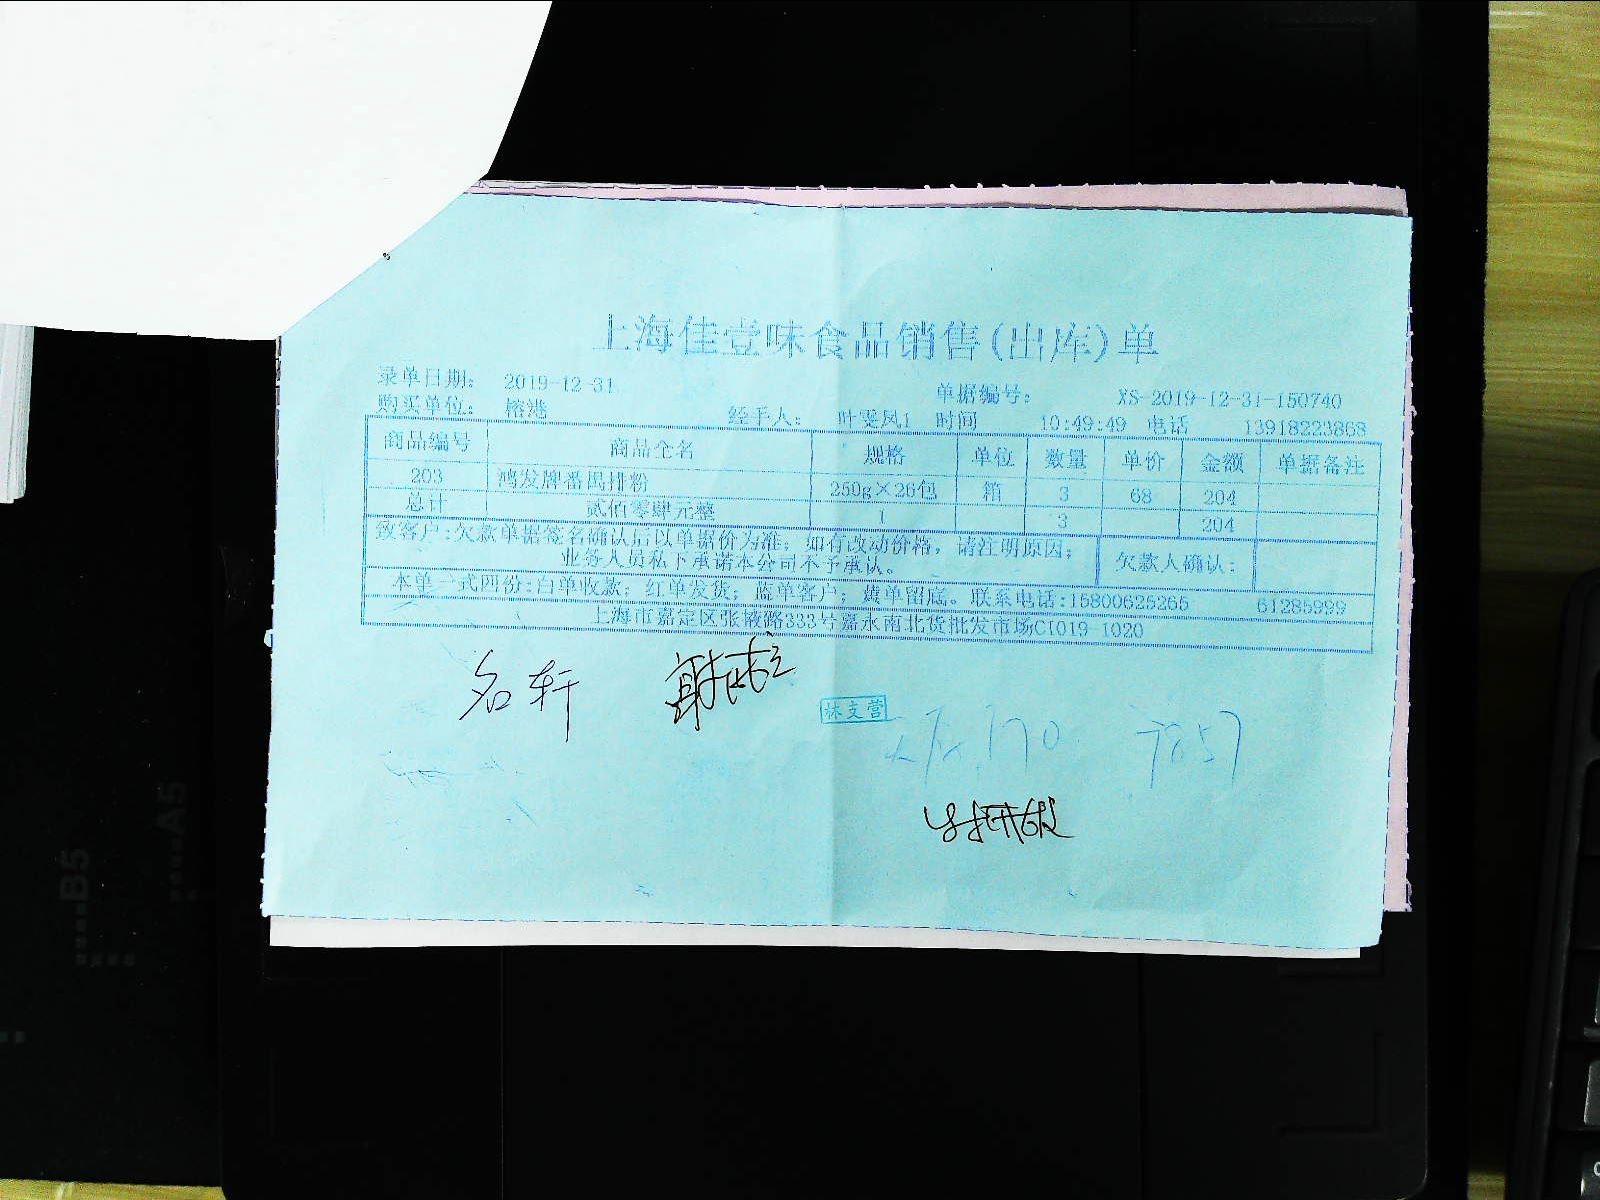 上海佳壹味食品销售(出库)单
录单日期: 2019-12-31 单据编号: XS-2019-12-31-150740
购买单位: 榕港 经手人: 叶雯凤1 时间 10:49:49 电话 13918223868
商品编号 商品全名 规格 单位 数量 单价 金额 单据备注
203 鸿发牌番禺排粉 250g×26包 箱 3 68 204
总计 贰佰零肆元整 1 3 204
致客户:欠款单据签名确认后以单据价为准; 如有改动价格, 请注明原因; 欠款人确认:
业务人员私下承诺本公司不予承认。
本单一式四份:白单收款; 红单发货; 蓝单客户; 黄单留底。联系电话:15800625265 61285999
上海市嘉定区张掖路333号嘉永南北货批发市场C1019-1020
名轩
林支营
B5
A5